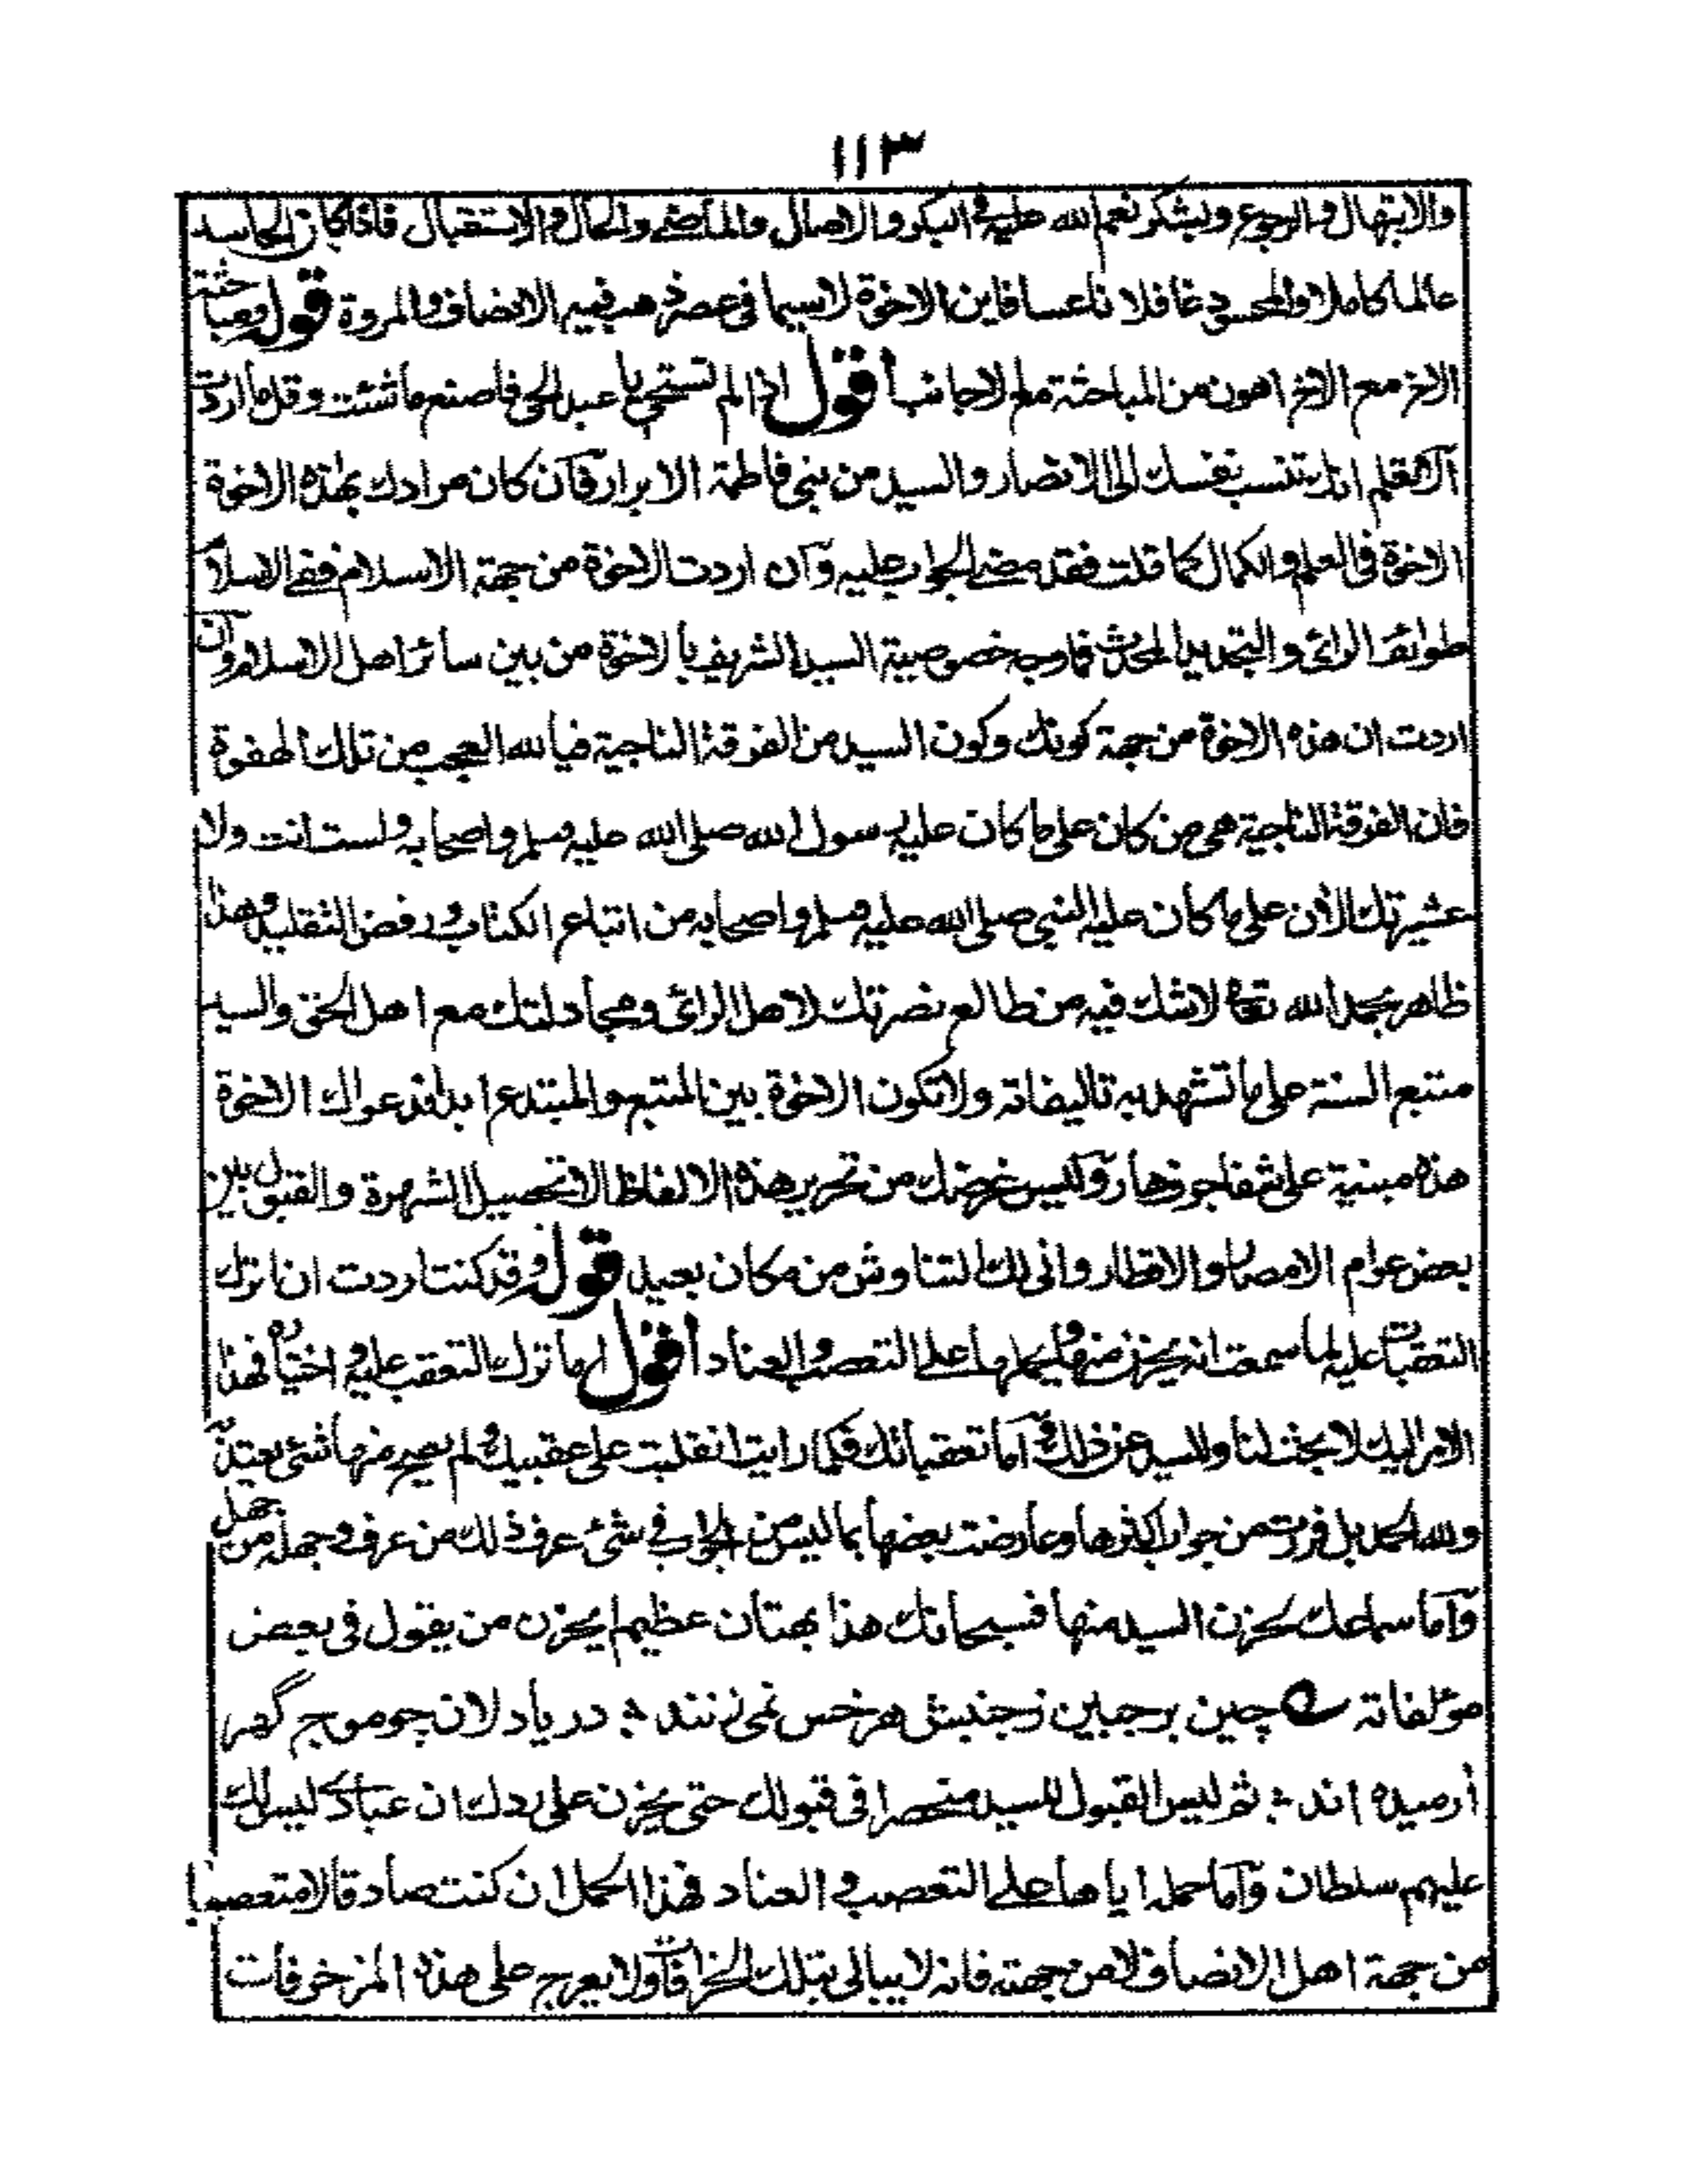 ١١٣
والابتهال والرجوع ويشكر نعم الله عليه في البكور والاصال والماضي والحال والاستقبال فاذا كان الحاسد
عالما كاملا والمحسود غافلا ناعسا فاين الاخوة لاسيما في عصر ذهب فيه الانصاف والمروة قوله ومباحثة
الاخ مع الاخ اهون من المباحثة مع الاجانب أقول اذا لم تستحي يا عبد الحي فاصنع ما شئت وقل ما اردت
آلم تعلم انك تنسب نفسك الى الانصار والسيد من بني فاطمة الابرار فآن كان مرادك بهذه الاخوة
الاخوة في العلم والكمال كما قلت فقد مضى الجواب عليه وآن اردت الاخوة من جهة الاسلام ففي الاسلام
طوائف الرائ والتجديد المحدث فما وجه خصوصية السيد الشريف بالاخوة من بين سائر اهل الاسلام وآن
اردت ان هذه الاخوة من جهة كونك وكون السيد من الفرقة الناجية فيا لله العجب من تلك الهفوة
فان الفرقة الناجية هي من كان على ما كان عليه رسول الله صلى الله عليه وسلم واصحابه ولست انت ولا
عشيرتك الأن على ما كان عليه النبي صلى الله عليه وسلم واصحابه من اتباع الكتاب ورفض التقليد وهذا
ظاهر بحمد الله تعالى لاشك فيه من طالع نصرتك لاهل الرائ ومجادلتك مع اهل الحق والسيد
متبع السنة على ما تشهد به تاليفاته ولا تكون الاخوة بين المتبع والمبتدع ابدا فدعواك الاخوة
هذه مبنية على شفا جرف هار وآليس غرضك من تحرير هذه الالفاظ الا تحصيل الشهرة والقبول بين
بعض عوام الامصار والاقطار وانى لك التناوش من مكان بعيد قوله وقد كنت اردت ان اترك
التعقبات عليه لما سمعت انه يحزن منها ويحملها على التعصب والعناد أقول اما ترك التعقب عليه واختياره فهذا
الامر اليك لا بحث لنا وللسيد عن ذلك وآما تعقباتك فكما رايت انقلبت على عقبيك ولم يصح منها شئ يعتد به
ولله الحمد بل فررت من جواب اكثرها وعارضت بعضها بما ليس من الجواب في شئ عرف ذلك من عرف وجهله من جهل
وآما سماعك بحزن السيد منها فسبحانك هذا بهتان عظيم ايحزن من يقول في بعض
مؤلفاته ـه چين بر جبين ز جنبش هر خس نمي زنند ÷ دريا دلان چو موج گهر
آرميده اند ÷ ثم ليس القبول للسيد منحصرا في قبولك حتى يحزن على ردك ان عبادي ليس لك
عليهم سلطان وآما حمله اياها على التعصب والعناد فهذا الحمل ان كنت صادقا لا متعصبا
من جهة اهل الانصاف لا من جهته فانه لا يبالي بتلك الخرافات ولا يعرج على هذه المزخرفات